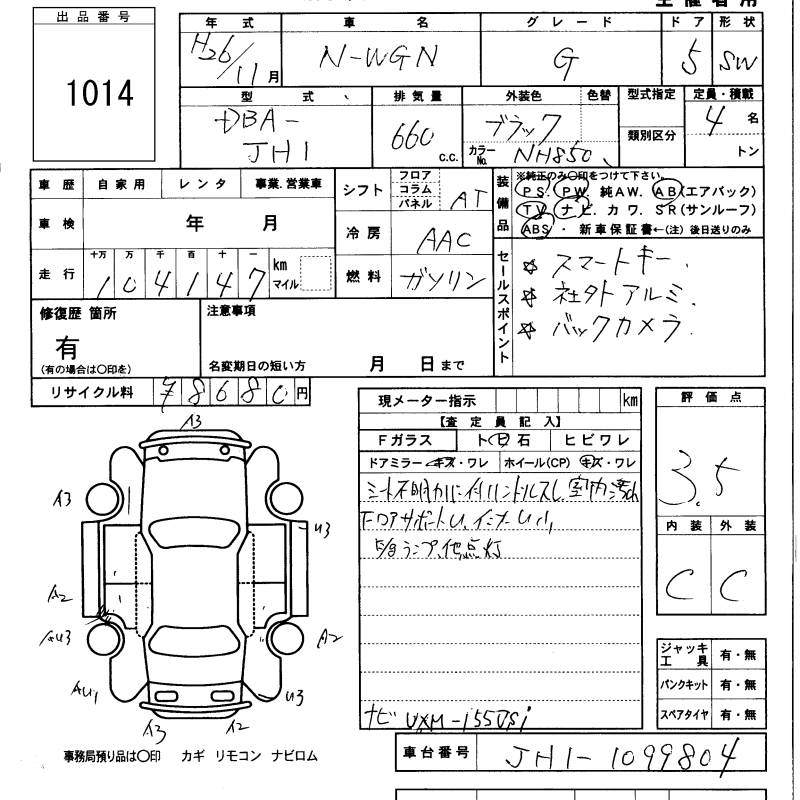 出品番号
1014
年式 車名 グレード ドア 形状
H26/11月 N-WGN G 5 SW
型式 排気量 外装色 色替 型式指定 定員・積載
DBA-JH1 660 c.c. ブラック 類別区分 4名
カラーNo. NH850 トン
車歴 自家用 レンタ 事業.営業車
シフト フロア コラム パネル AT
装備品 ※純正のみ〇印をつけて下さい。
PS. PW. 純AW. AB(エアバック)
TV ナビ. カワ. SR(サンルーフ)
ABS ・ 新車保証書←(注) 後日送りのみ
車検 年 月
冷房 AAC
走行 十万 万 千 百 十 一 km マイル
104147
燃料 ガソリン
セールスポイント
☆ スマートキー.
☆ 社外アルミ.
☆ バックカメラ
修復歴 箇所
有
(有の場合は〇印を)
注意事項
名変期日の短い方 月 日まで
リサイクル料 78680円
現メーター指示 km
【査定員記入】
Fガラス ト日石 ヒビワレ
ドアミラー キズ・ワレ ホイール(CP) キズ・ワレ
ナビ VXM-155VSi
評価点
3.5
内装 外装
C C
ジャッキ工具 有・無
パンクキット 有・無
スペアタイヤ 有・無
A3
A3
U3
A2
AU3
A2
AU1
U3
A3 A2
事務局預り品は〇印 カギ リモコン ナビロム
車台番号 JH1-1099804